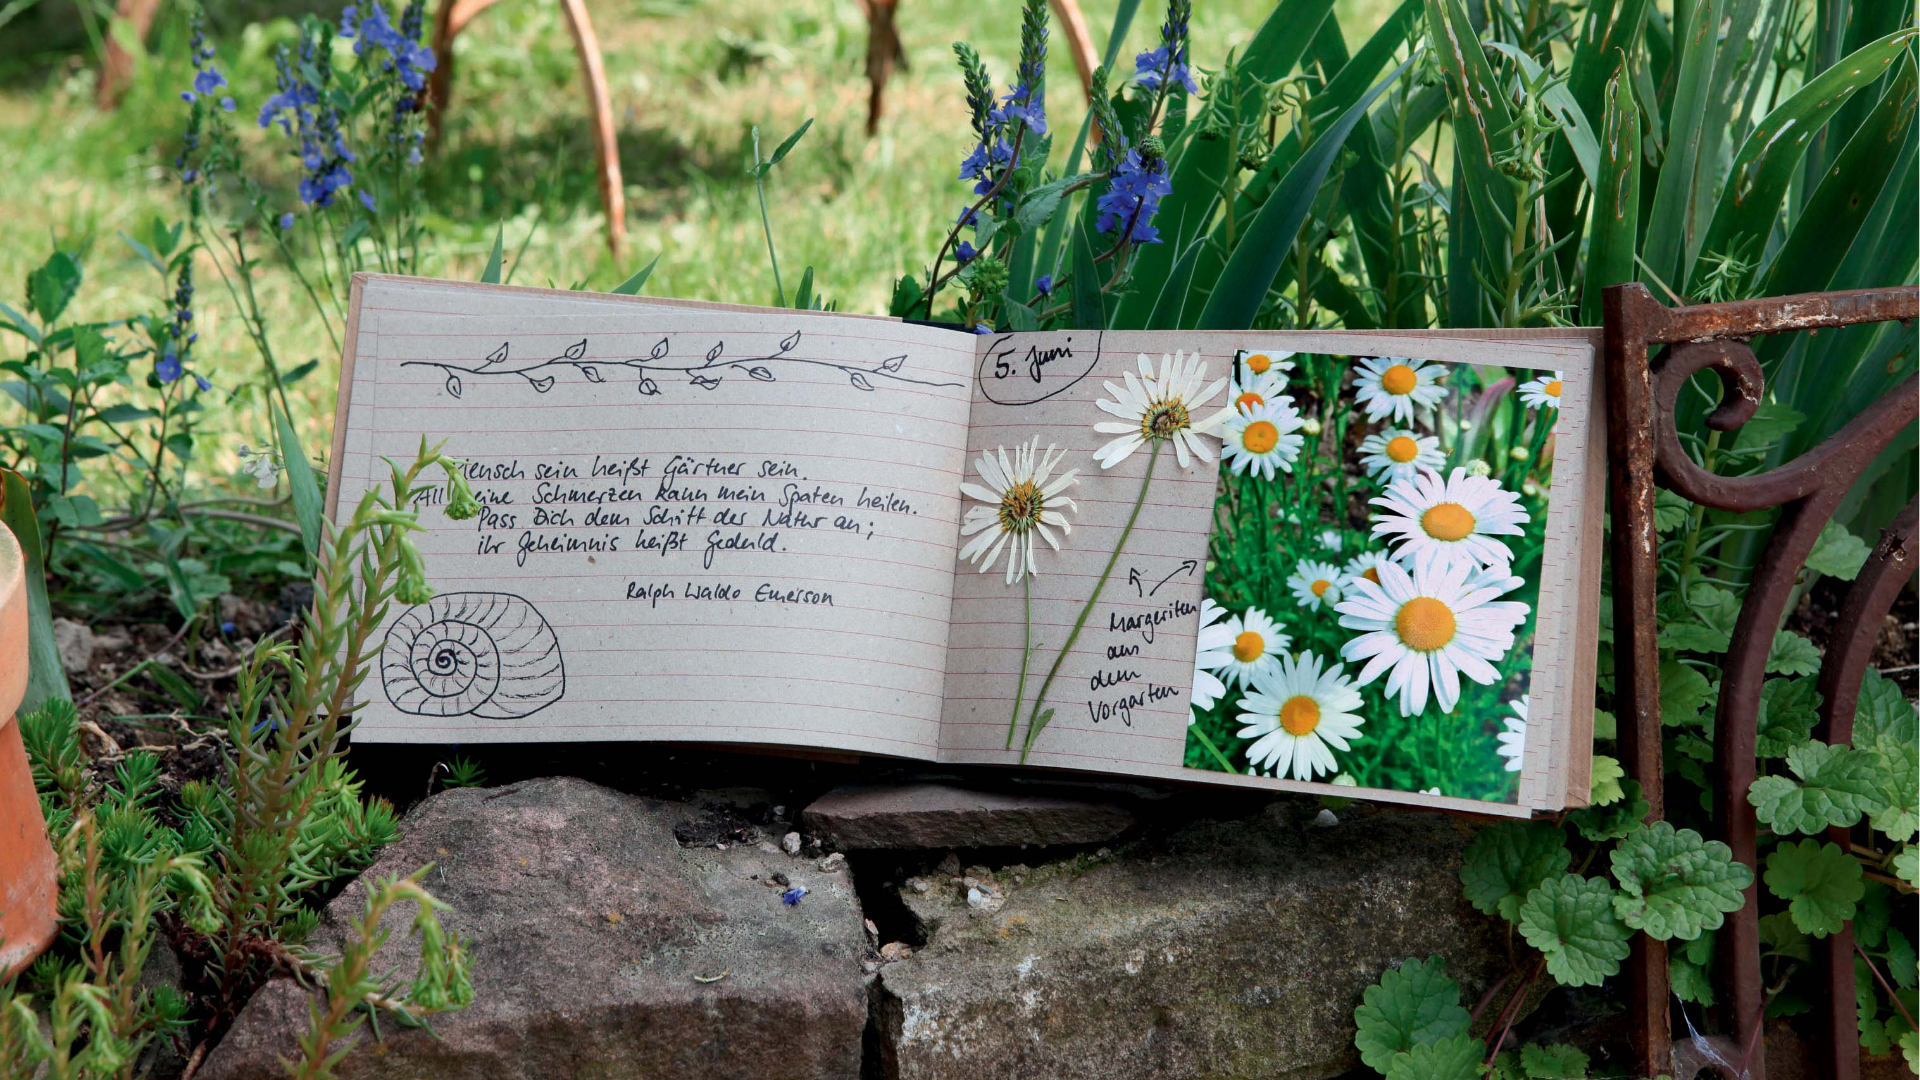 Mensch sein heißt Gärtner sein.
All meine Schmerzen kann mein Spaten heilen.
Pass Dich dem Schritt der Natur an;
ihr Geheimnis heißt Geduld.
Ralph Waldo Emerson
5. Juni
Margeriten
aus
dem
Vorgarten